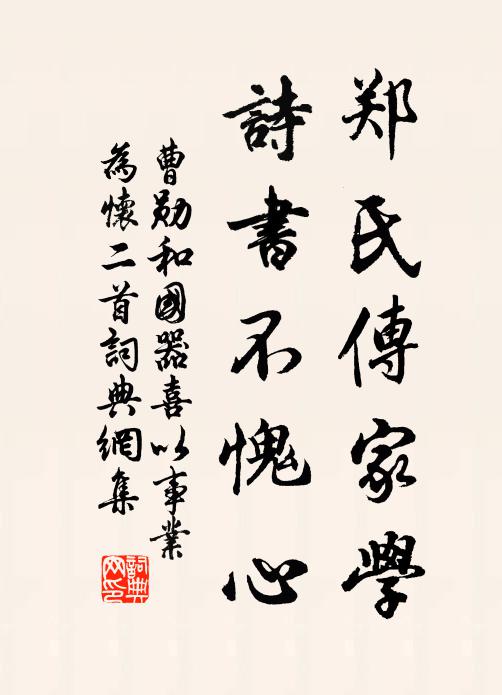 郑氏傳家學
詩書不愧心
曹勋和國器喜以事業
為懷二首詞典網集
詞典
网印